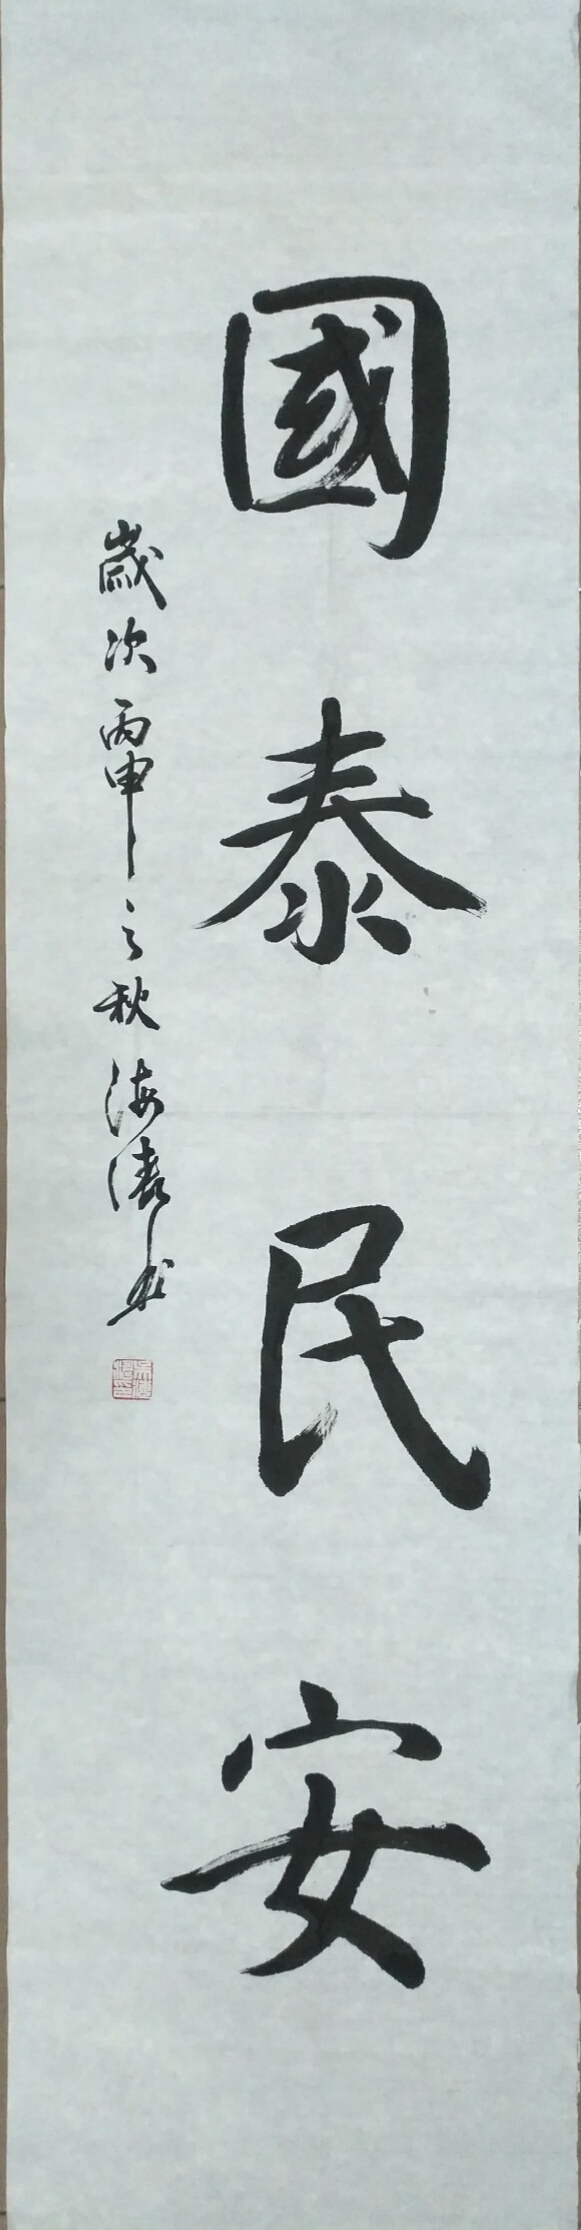 國泰民安
歲次丙申之秋海濤書